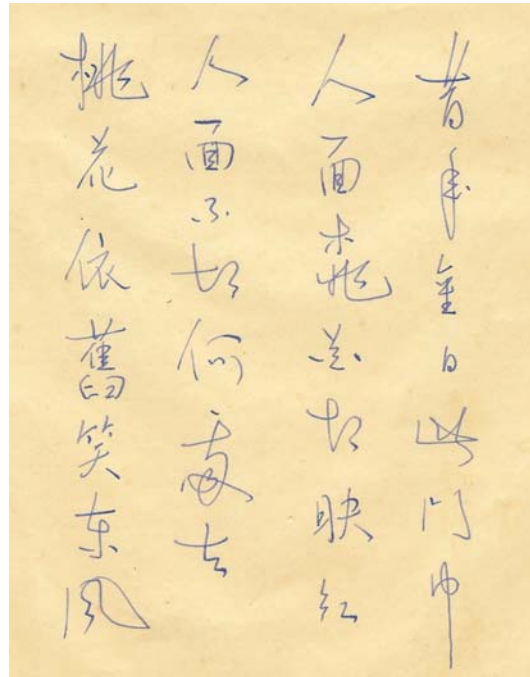 昔年金日此门中
人面桃花相映红
人面不知何處去
桃花依舊笑东风